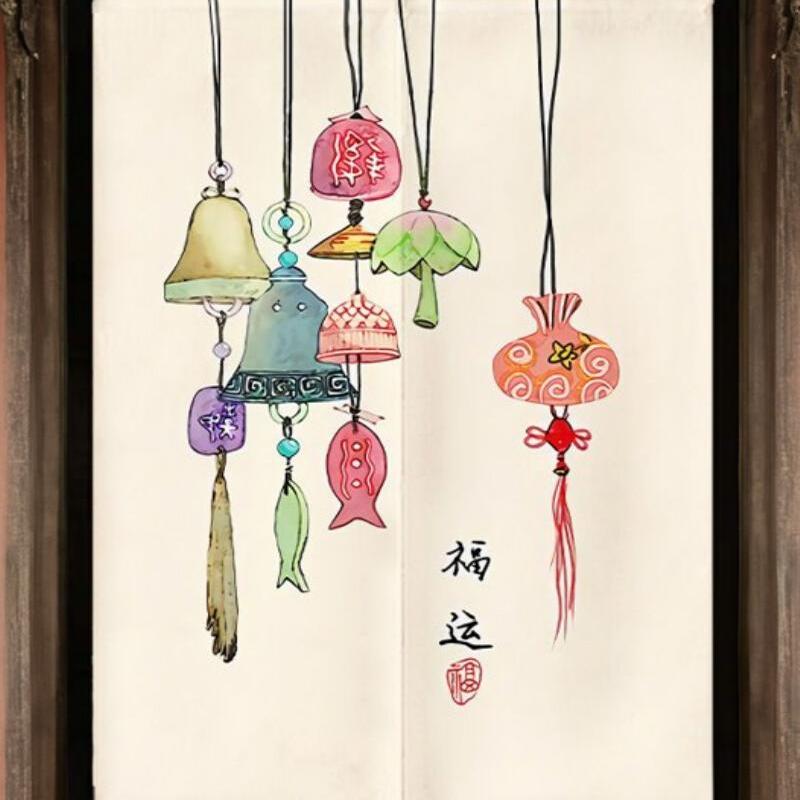 福
运
福